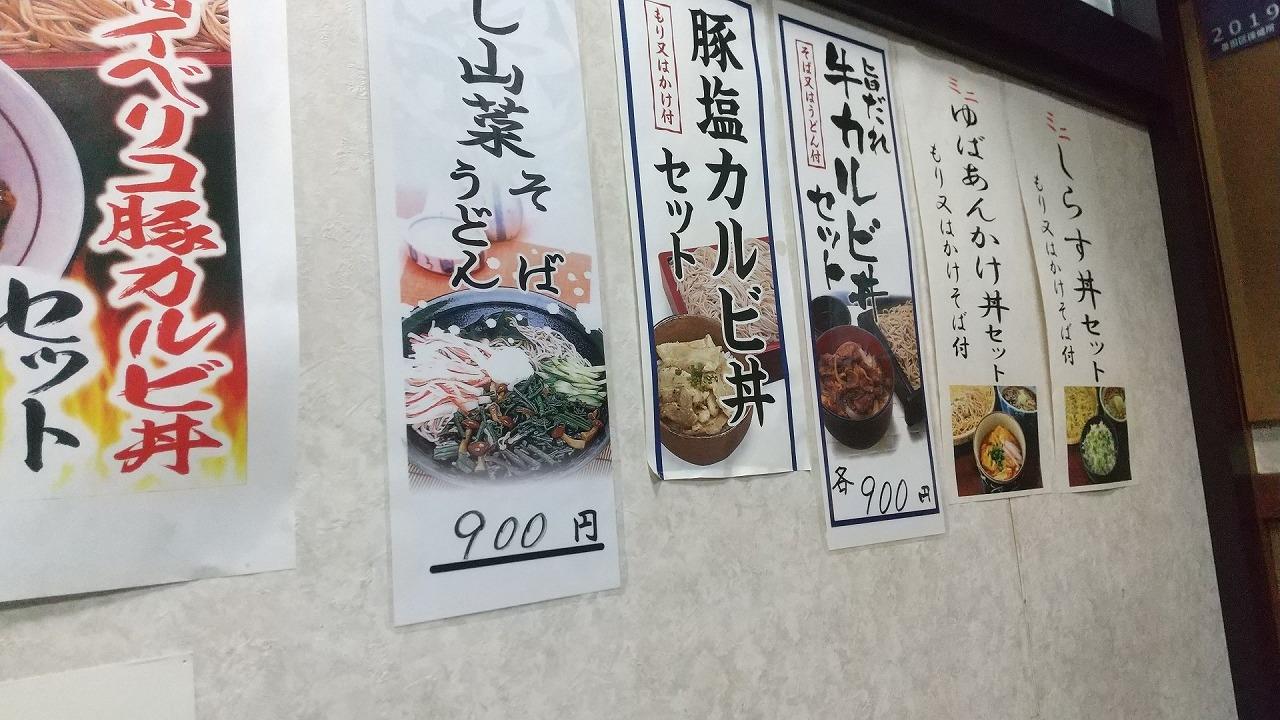 イベリコ豚カルビ丼
セット
し山菜
そば
うどん
900円
もり又はかけ付
豚塩カルビ丼
セット
そば又はうどん付
旨だれ
牛カルビ丼
セット
各900円
ミニ
ゆばあんかけ丼セット
もり又はかけそば付
ミニ
しらす丼セット
もり又はかけそば付
2019